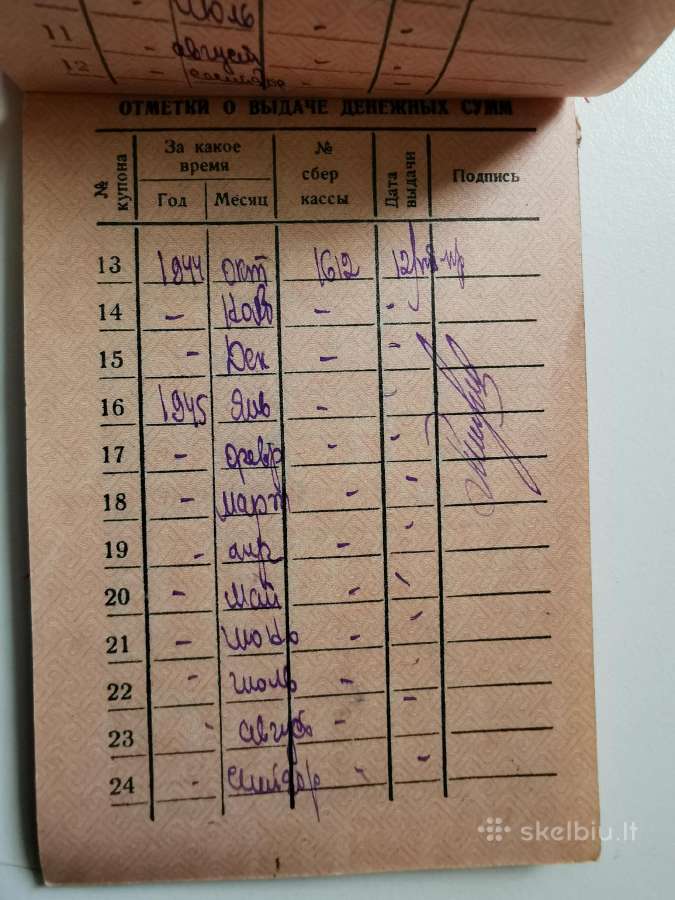 июль
11 - август - -
12 - сентябр - -
ОТМЕТКИ О ВЫДАЧЕ ДЕНЕЖНЫХ СУММ
№ купона За какое время № сбер кассы Дата выдачи Подпись
Год Месяц
13 1944 окт 1612
14 - Нояб - -
15 - Дек - -
16 1945 янв - -
17 - февр - -
18 - март - -
19 - апр - -
20 - май - -
21 - июнь - -
22 - июль - -
23 - август - -
24 - сентябр - -
skelbiu.lt